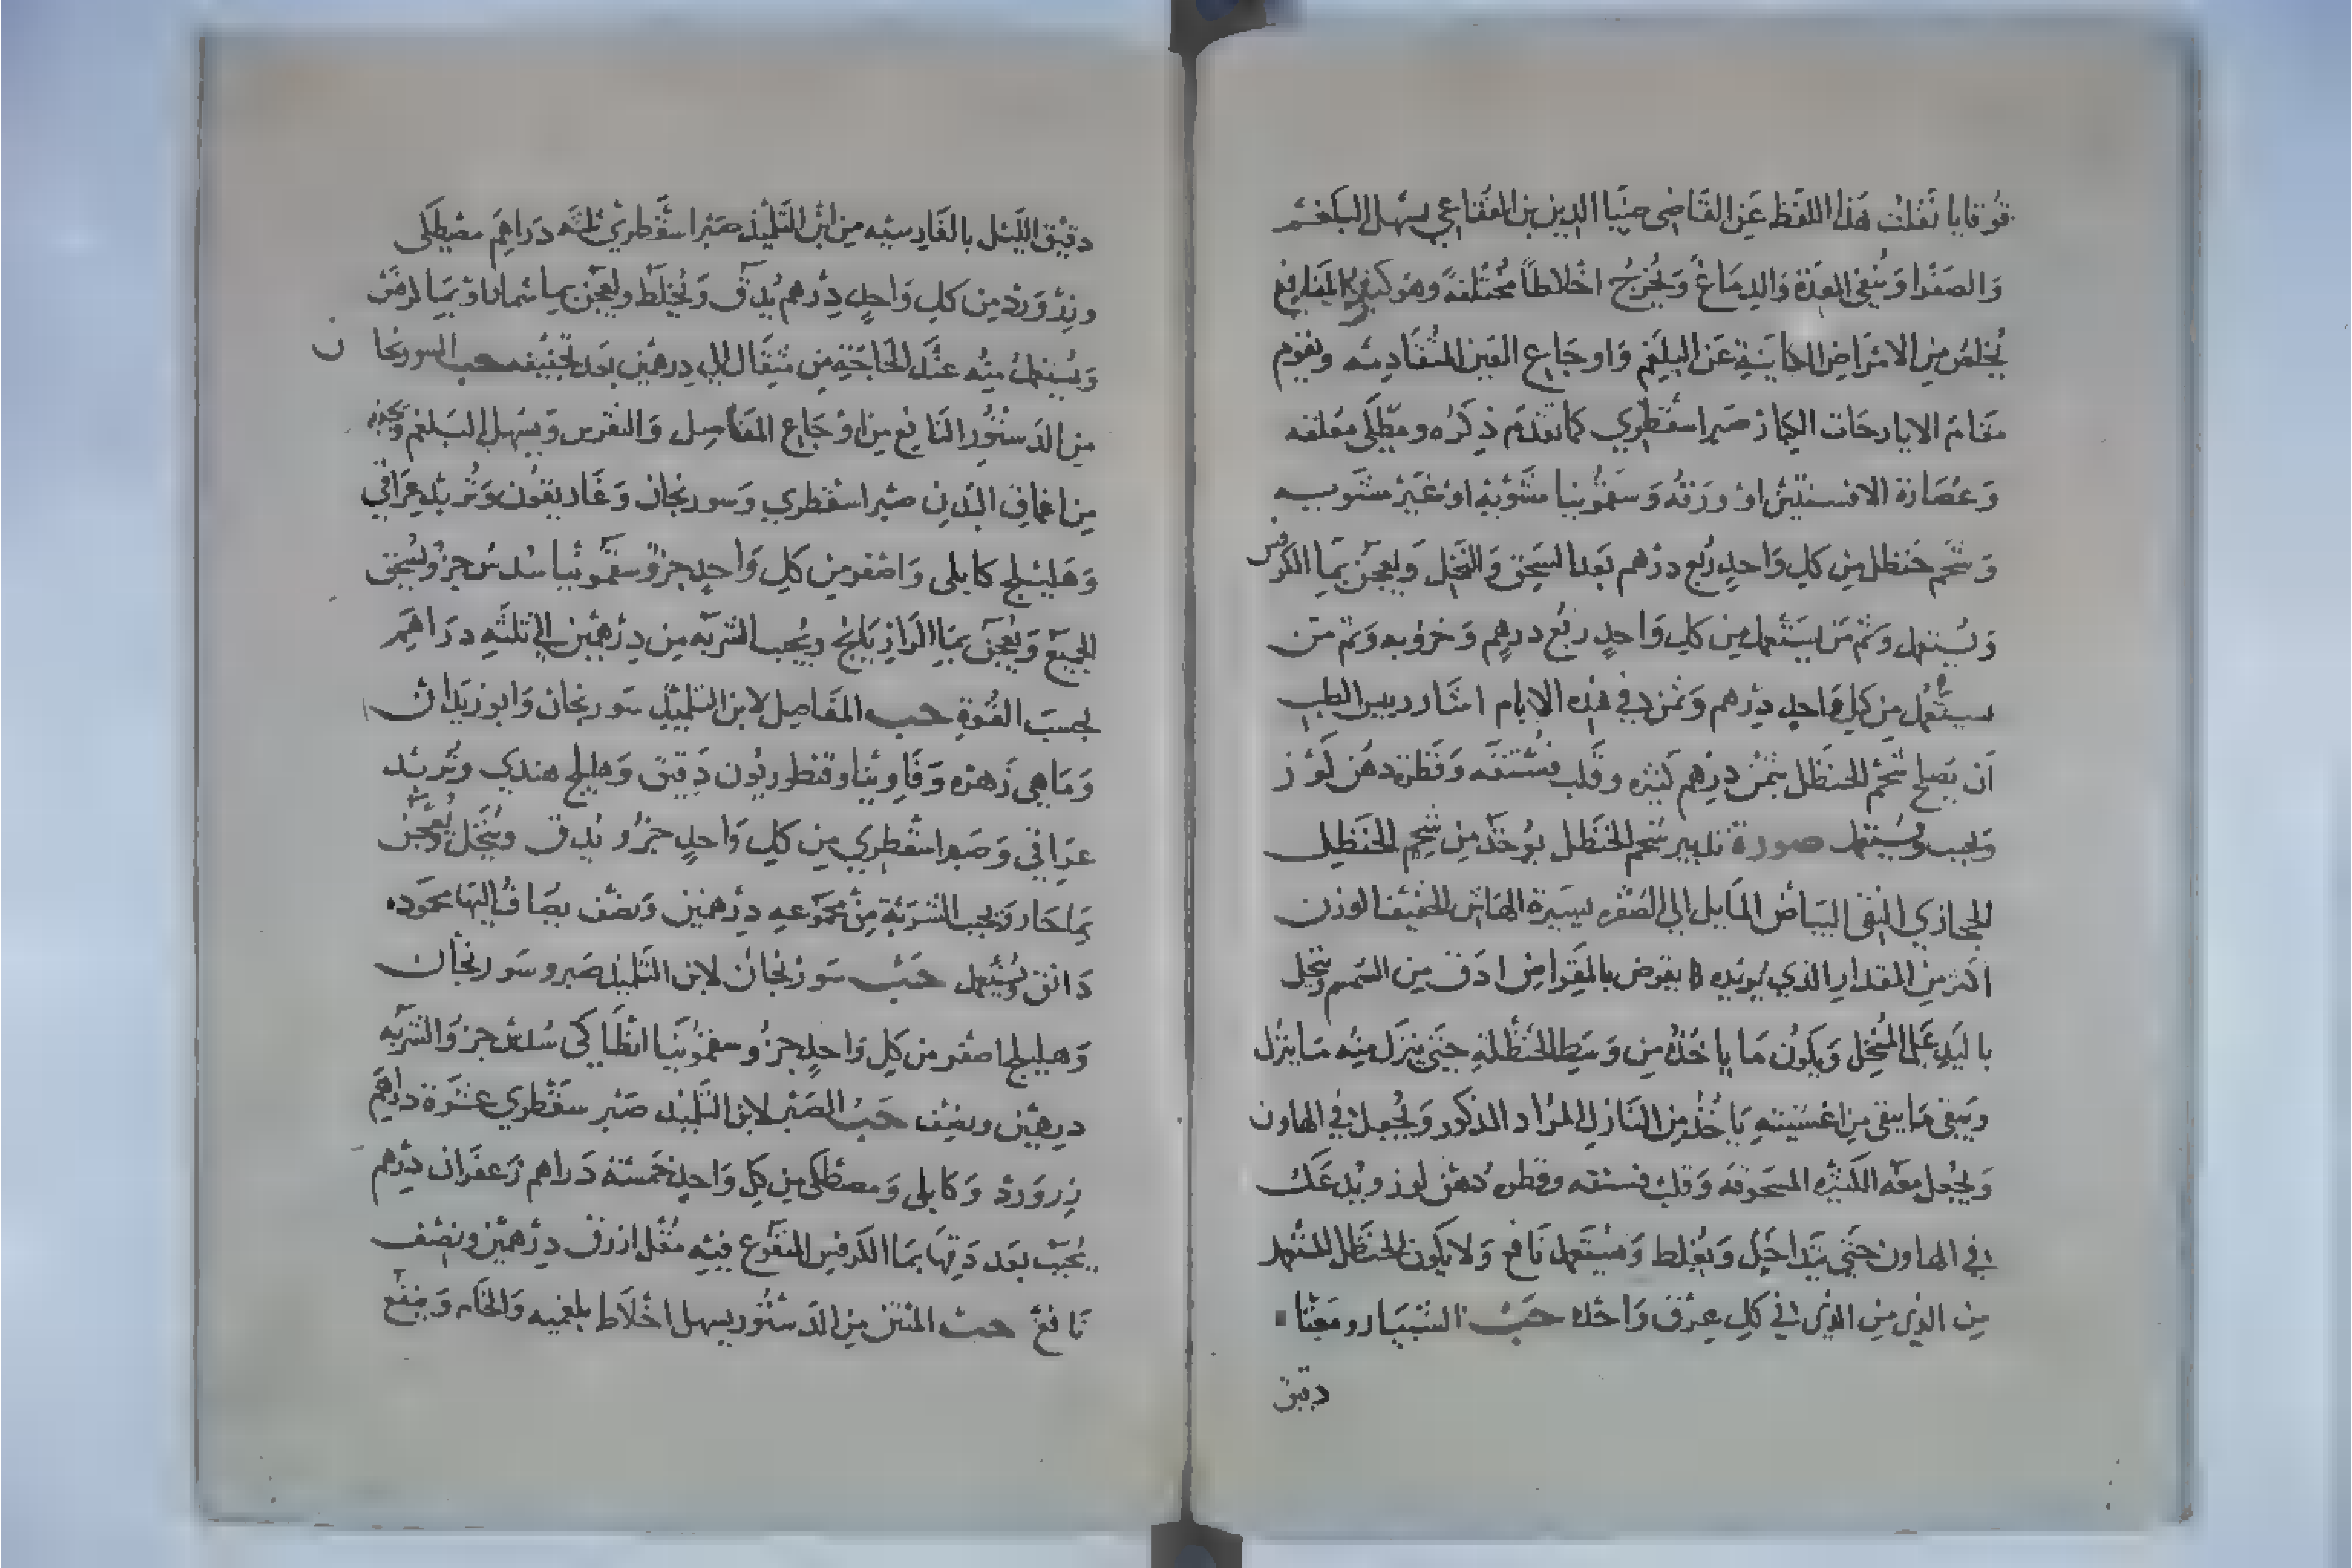 قوقايا نقلت هذا اللفظ عن القاضي ضيا الدين بن القفاعي يسهل البلغم
والصفرا وينقي المعدة والدماغ ويخرج اخلاطاً مختلفة وهو كثير المنافع
يخلص من الامراض الكاينة عن البلغم واوجاع العين المتقادمه ويقوم
مقام الايارجات الكبار صبر اسقطري كما تقدم ذكره ومصطكى معلقه
وعصارة الافسنتين او ورقه وسقمونيا مشويه او غير مشويه
وشحم حنظل من كل واحد ربع درهم بعد السحق والنخل ويعجن بما الكرفس
ويستعمل وثم من يستعمل من كل واحد ربع درهم وخروبه وثم من
يستعمل من كل واحد درهم وثمن وفي هذه الايام اشار رييس الطب
ان يصلح شحم الحنظل بثمن درهم كثيره وقلب فستقه وقطرة دهن لوز
ويحبب ويستعمل صورة تدبير شحم الحنظل يوخذ من شحم الحنظل
الحجازي النقي البياض المايل الى الصفره يسيرة الهاش الخفيف الوزن
اكثر من المقدار الذي يريده يقرض بالمقراض ادق من السمسم وينخل
باليد على المنخل ويكون ما ياخذه من وسط الحنظلة حتى ينزل منه ما ينزل
ويبقى ما يبقى من اغشيته ياخذ من النازل المراد المذكور ويجعل في الهاون
ويجعل معه الكثيره المسحوقه وقلب فستقه وقطره دهن لوز ويدعك
في الهاون حتى يتداخل ويغلط ويستعمل نافع ولا يكون الحنظل المستعمل
من الذي من الذي في كل عرق واحده حب الشبيار ومعنا
دقيق
دقيق الليل بالفارسيه من ابن التلميذ صبر اسقطري ثلثه دراهم مصطكى
وزر ورد من كل واحد درهم يدق ويخلط ويعجن بما او بما
ويستعمل منه عند الحاجة من مثقال الى درهمين بعد تجفيفه حب السورنجان
من الدستور النافع من اوجاع المفاصل والنقرس ويسهل البلغم ويجذبه
من اعماق البدن صبر اسقطري وسورنجان وغاريقون وتربد عراقي
وهليلج كابلي واصفر من كل واحد جزو سقمونيا سدس جزو يسحق
الجميع ويعجن بما الرازيانج ويحبب الشربه من درهمين الى ثلثه دراهم
بحسب القوة حب المفاصل لابن التلميذ سورنجان وابوزيدان
وماهي زهره وفاوينا وقنطوريون دقيق وهليلج هندي وتربد
عراقي وصبر اسقطري من كل واحد جزو يدق وينخل ويعجن
بما حار ويحبب الشربة من مجموعه درهمين ونصف يضاف اليها محموده
دانق ويستعمل حب سورنجان لابن التلميذ صبر وسورنجان
وهليلج اصفر من كل واحد جزو سقمونيا انطاكي سدس جزو الشربه
درهمين ونصف حب الصبر لابن التلميذ صبر سقطري عشرة دراهم
زرورد وكابلي ومصطكى من كل واحد خمسة دراهم زعفران درهم
يحبب بعد دقها بما الكرفس المنقوع فيه مقل ازرق درهمين ونصف
نافع حب المنتن من الدستور يسهل اخلاط بلغميه والخام وينفع